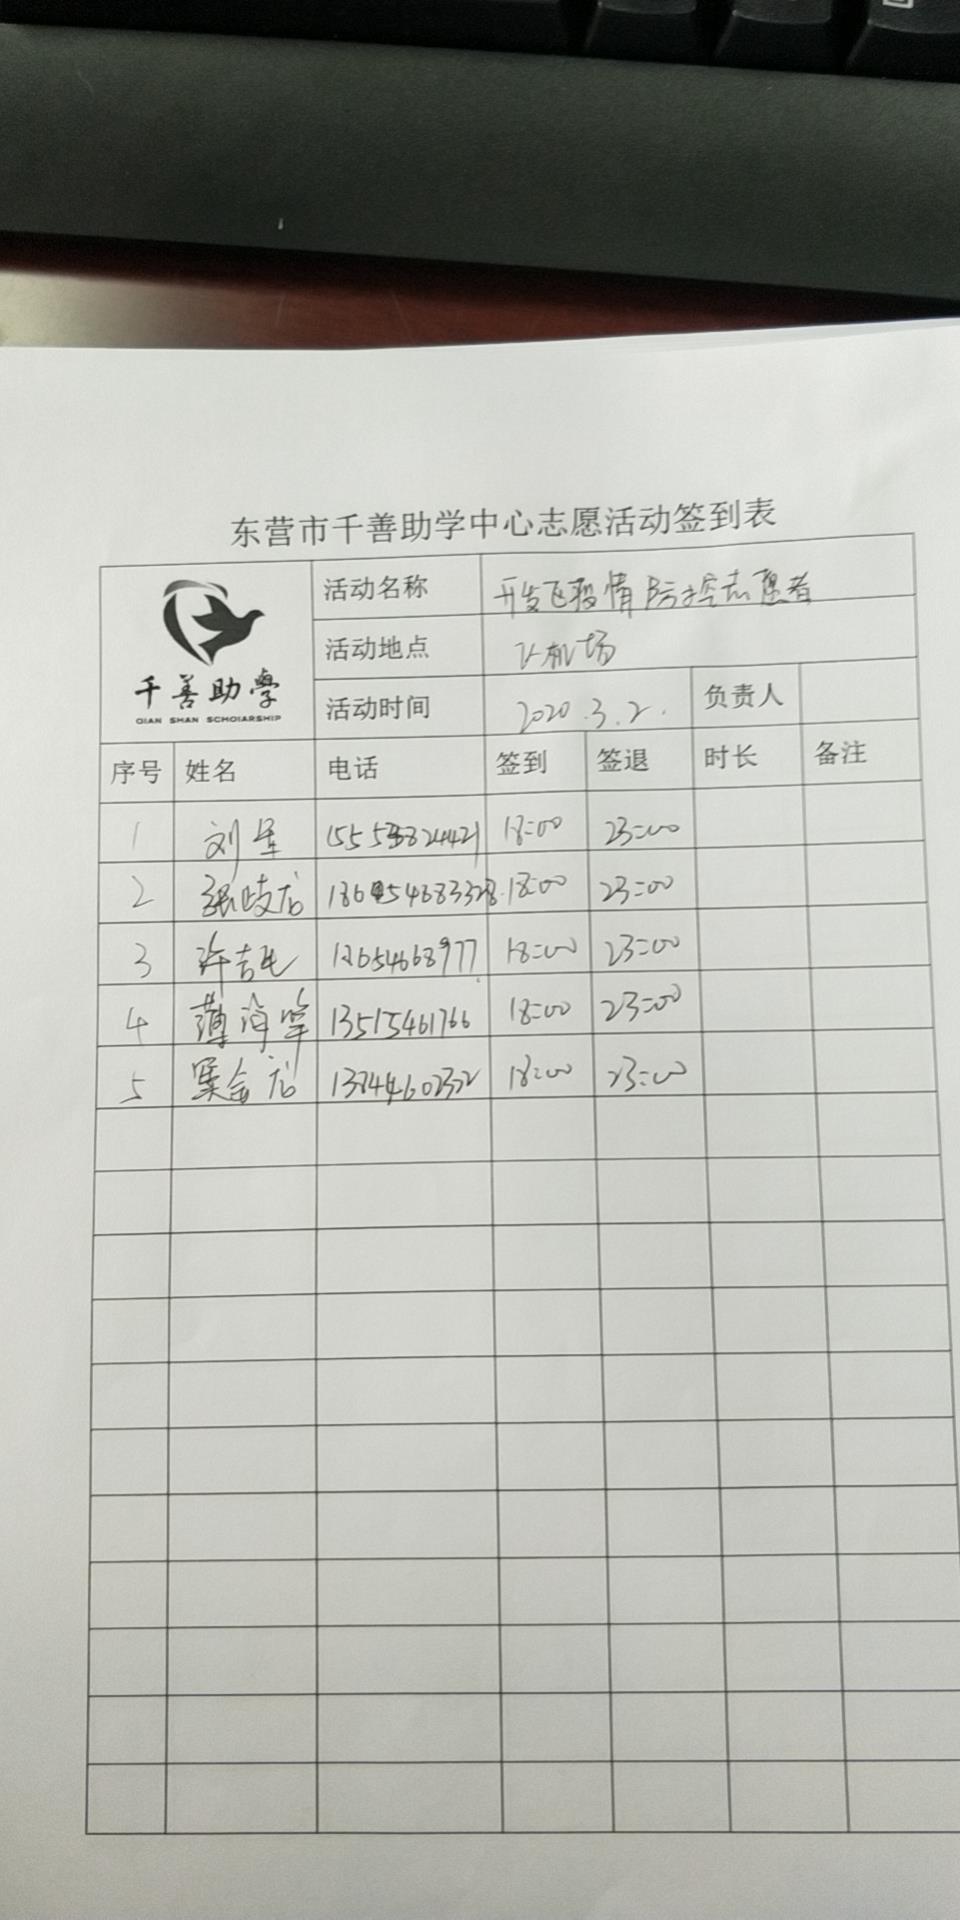 东营市千善助学中心志愿活动签到表
千善助學
QIAN SHAN SCHOIARSHIP
活动名称 开发区疫情防控志愿者
活动地点 飞机场
活动时间 2020.3.2. 负责人
序号 姓名 电话 签到 签退 时长 备注
1 刘军 18:00 23:00
2 张岐店 18:00 23:00
3 许吉民 18:00 23:00
4 薄 13515461766 18:00 23:00
5 18:00 23:00